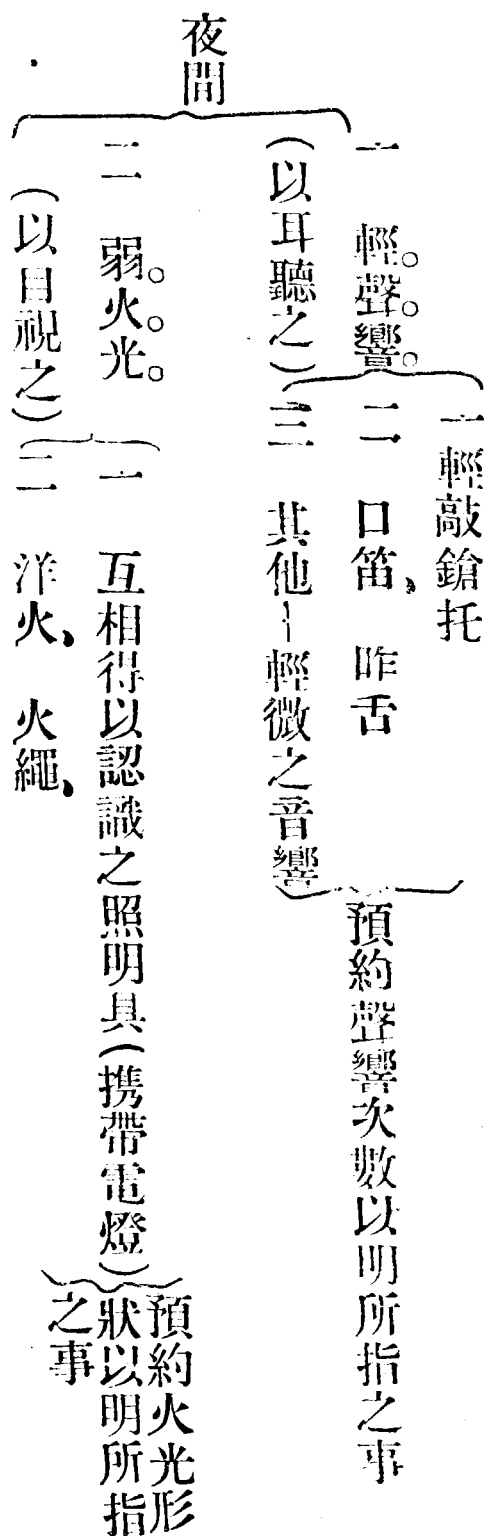 夜間
一　輕聲響
（以耳聽之）
一輕敲鎗托
二　口笛、咋舌
三　其他—輕微之音響
預約聲響次數以明所指之事
二　弱火光
（以目視之）
一　互相得以認識之照明具（携帶電燈）
二　洋火、火繩、
預約火光形
狀以明所指
之事